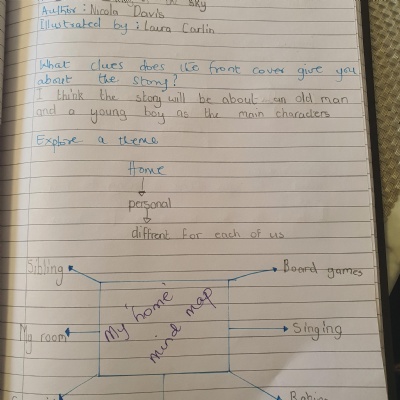 the sky
Author : Nicola Davis
Illustrated by : Laura Carlin
What clues does the front cover give you
about the story?
I think the story will be about an old man
and a young boy as the main characters
Explore a theme
Home
personal
diffrent for each of us
Sibling
Board games
My 'home'
mind map
My room
Singing